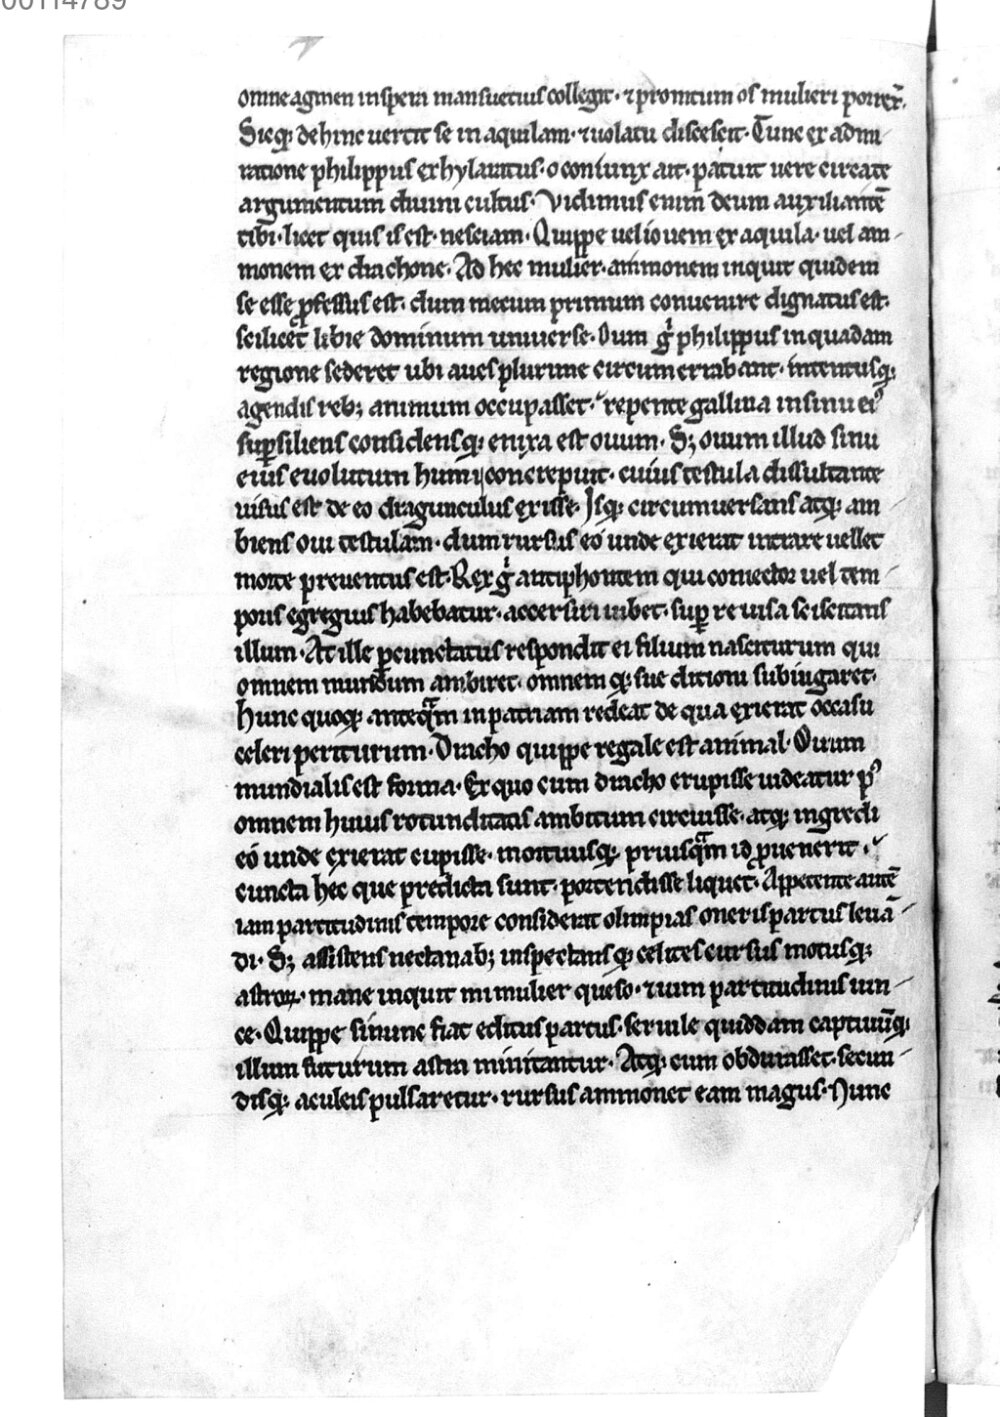 00114789
omne agmen in speıri mansuetius collegit · ⁊ promtum os mulieri porrex̄ ·
Sicq; dehinc uertit se in aquilam · ⁊ uolatu discescit · Tunc ex admi
ratione philippus exhylaratus · o coniunx ait · patuit uere circa te
argumentum diuini cultus · Vidimus enim deum auxiliantē
tibi · licet quis is est · nesciam · Quippe uel iouem ex aquila · uel am
monem ex drachone · Ad hec mulier · ammonem inquit quidem
se esse ꝓfessus est · dum mecum primum conuenire dignatus est ·
scilicet libie dominum uniuerse · Dum gͥ philippus in quadam
regione sederet ubi aues plurime circumerrabant · intentusq;
agendis reb; animum occupasset · repente gallina in sinu ei᾽
suꝑsiliens considensq; enixa est ouum · S; ouum illud sinu
eius euolutum humi concrepuit · cuius testula dissultante
uisus est de eo dragunculus exisse · Isq; circumuersans atq; am
biens oui testulam · dum rursus eo unde exierat intrare uellet
morte preuentus est · Rex gͥ antiphontem qui coniector uel tem
poris egregius habebatur · accersiri iubet · suꝑ re uisa sciscitans
illum · At ille ꝑcunctatus respondit ei filium nasciturum qui
omnem mundum ambiret · omnem q; sue dicioni subiugaret ·
hunc quoq; anteqͣm in patriam redeat de qua exierat occasu
celeri periturum · Dracho quippe regale est animal · Ouum
mundialis est forma · Ex quo cum dracho erupisse uideatur p᾽
omnem huius rotunditatis ambitum circuisse · atq; ingredi
eo unde exierat cupisse · mortuusq; priusqͣm id ꝓuenerit ·
cuncta hec que predicta sunt · portendisse liquet · Appetente autē
iam partitudinis tempore considerat olimpias oneris partus leuā
di · S; assistens nectanab; inspectans q; celites cursus motusq;
astroꝝ · mane inquit mi mulier queso · ⁊ uim partitudinis uin
ce · Quippe si nunc fiat editus partus · seruile quiddam captiuūq;
illum futurum astra minitantur · Atq; cum obdurasset · secun
disq; aculeis pulsaretur · rursus ammonet eam magus · Nunc